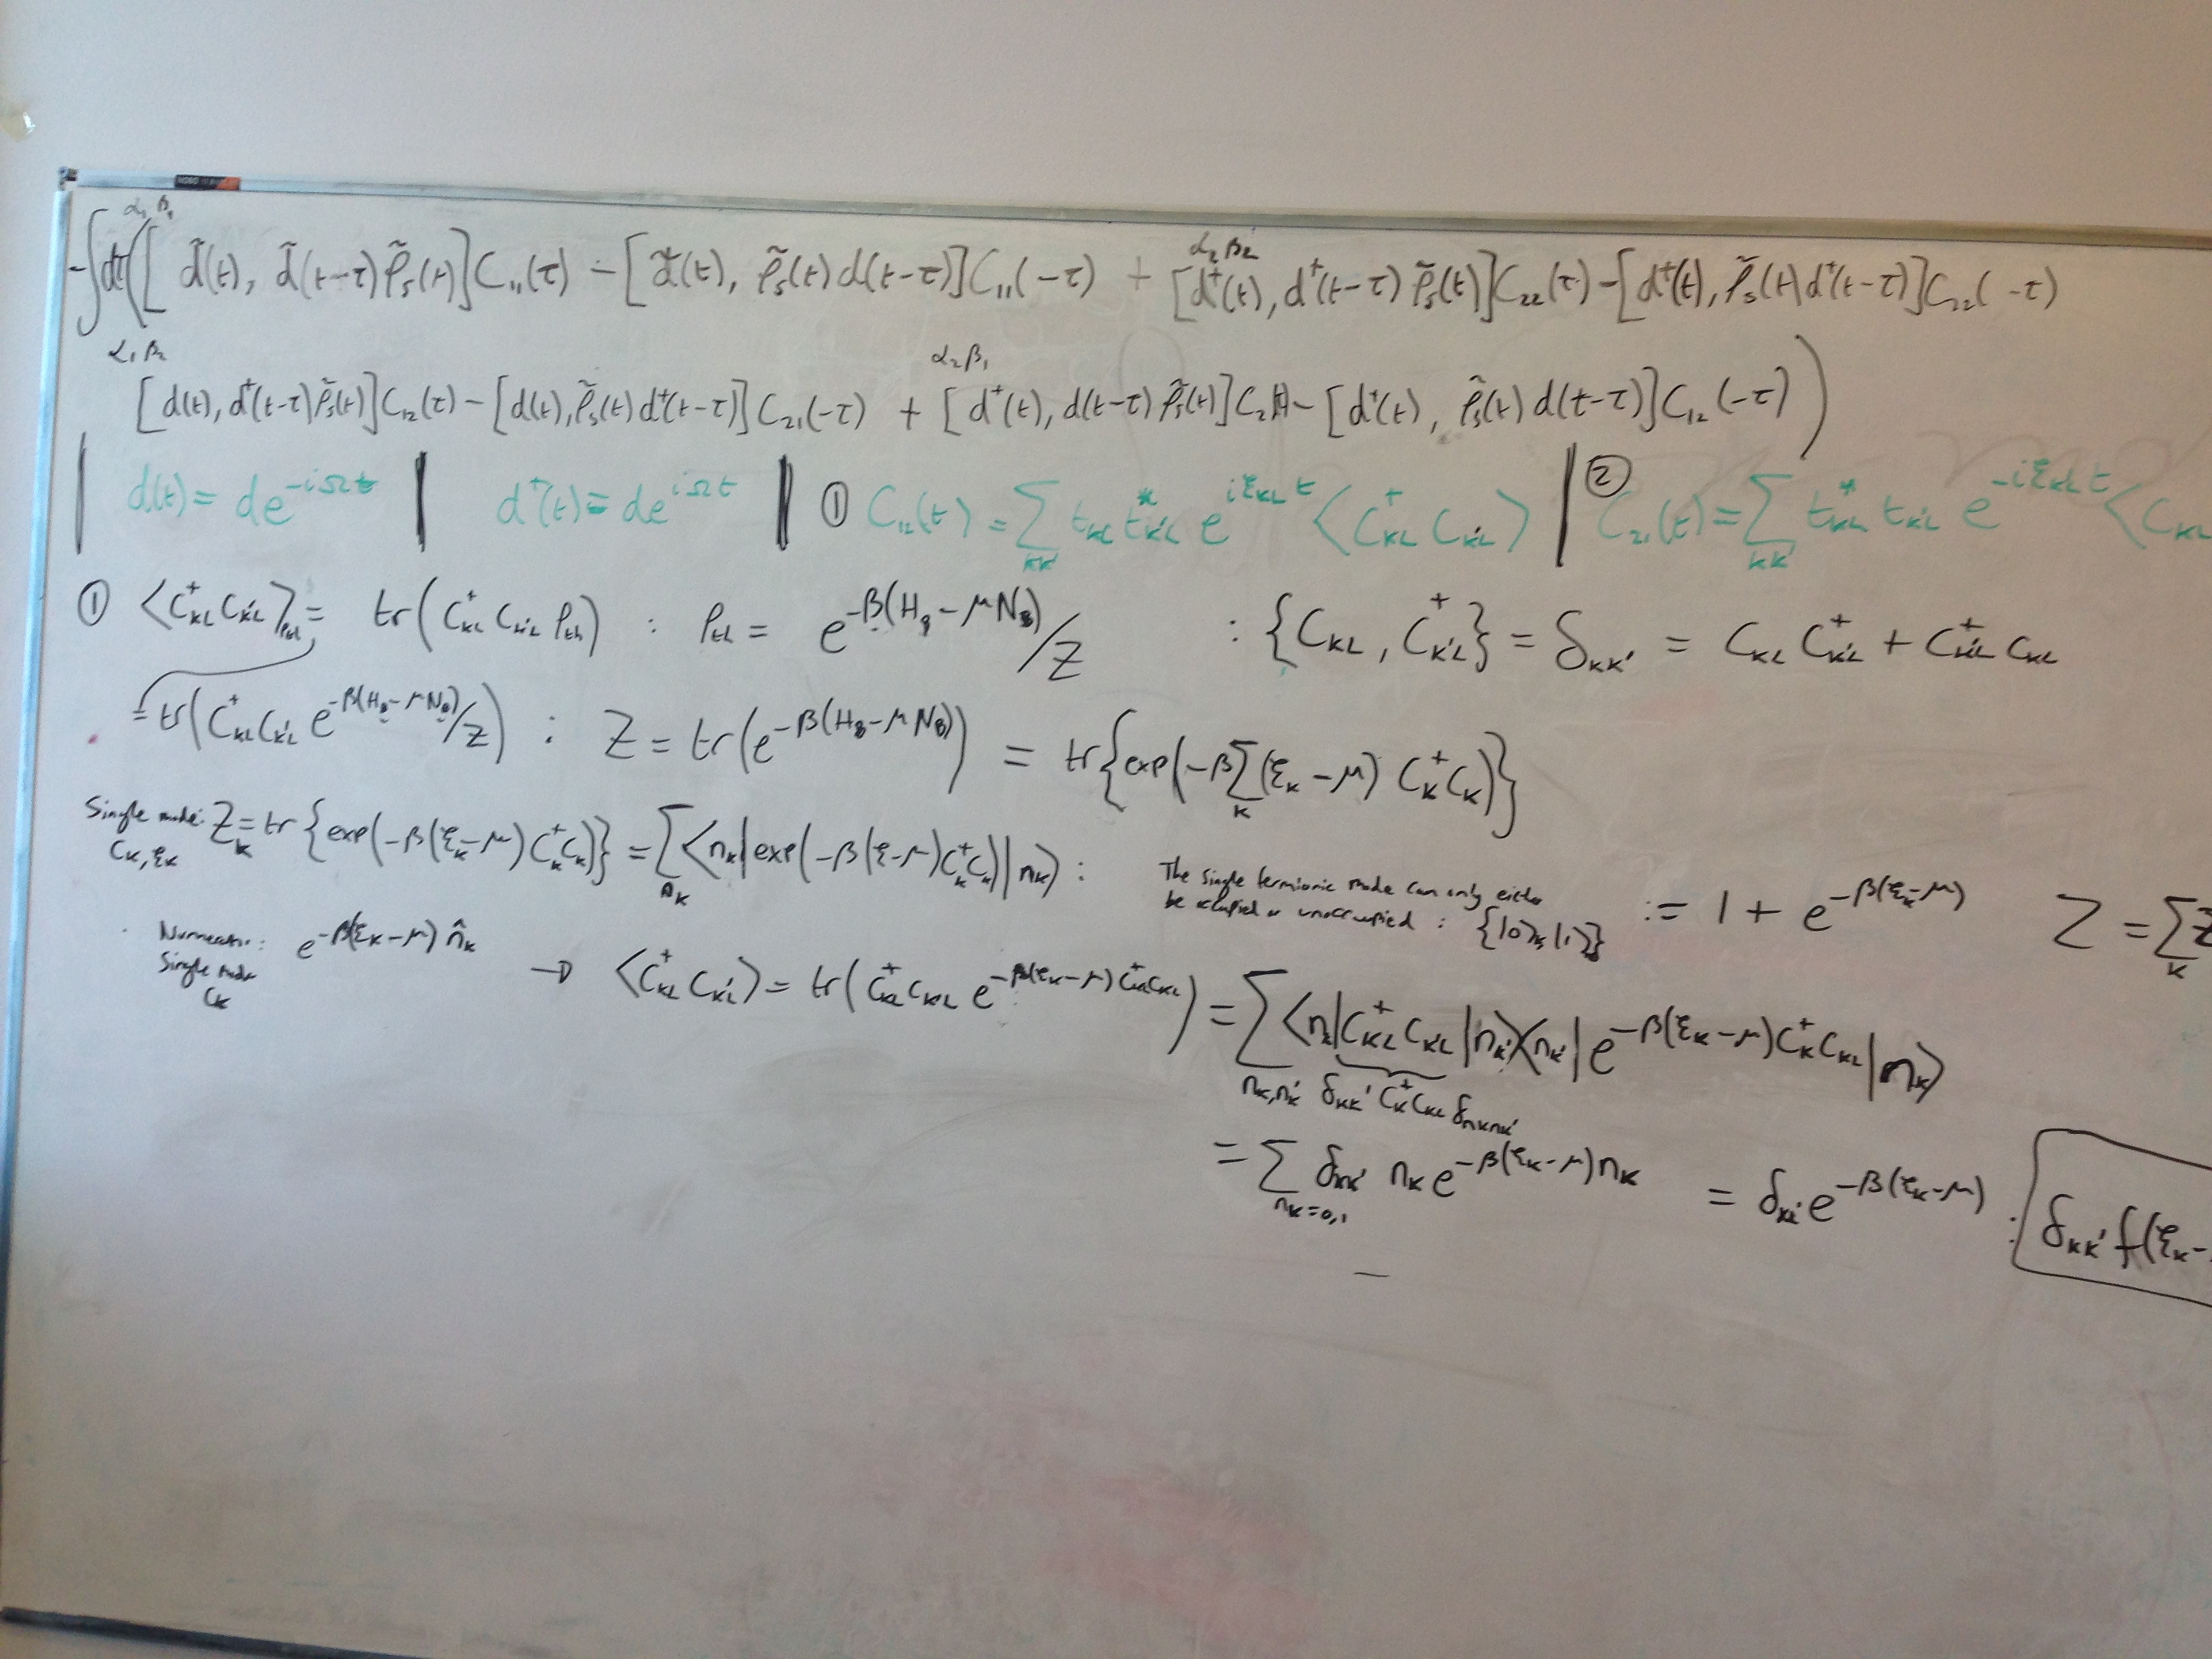 α₁ β₁
α₂ β₂
-∫dτ([ d̃(t), d̃(t-τ) ρ̃ₛ(t)]C₁₁(τ) - [d̃(t), ρ̃ₛ(t) d(t-τ)]C₁₁(-τ) + [d⁺(t), d⁺(t-τ) ρ̃ₛ(t)]C₂₂(τ) - [d⁺(t), ρ̃ₛ(t) d⁺(t-τ)]C₂₂(-τ)
α₁ β₂
α₂ β₁
[d(t), d⁺(t-τ) ρ̃ₛ(t)]C₁₂(τ) - [d(t), ρ̃ₛ(t) d⁺(t-τ)]C₂₁(-τ) + [d⁺(t), d(t-τ) ρ̃ₛ(t)]C₂₁(τ) - [d⁺(t), ρ̃ₛ(t) d(t-τ)]C₁₂(-τ))
| d(t) = de^{-iΩt} | d⁺(t) = de^{iΩt} | ① C₁₂(t) = ∑_{kk'} t_{kL} t*_{k'L} e^{iξ_{kL}t} ⟨C⁺_{kL} C_{k'L}⟩ | ② C₂₁(t) = ∑_{kk'} t*_{kL} t_{k'L} e^{-iξ_{kL}t} ⟨C_{kL}
① ⟨C⁺_{kL} C_{k'L}⟩_{ρth} = tr(C⁺_{kL} C_{k'L} ρ_{th}) : ρ_{th} = e^{-β(H_B - μN_B)}/Z : {C_{kL}, C⁺_{k'L}} = δ_{kk'} = C_{kL} C⁺_{k'L} + C⁺_{k'L} C_{kL}
= tr(C⁺_{kL} C_{k'L} e^{-β(H_B - μN_B)}/Z) : Z = tr(e^{-β(H_B - μN_B)}) = tr{exp(-β∑_k(ξ_k - μ) C⁺_k C_k)}
Single mode: C_k, ξ_k Z_k = tr{exp(-β(ξ_k - μ)C⁺_k C_k)} = ∑_{n_k} ⟨n_k|exp(-β(ξ-μ)C⁺_k C_k)|n_k⟩ :
The single fermionic mode can only either
be occupied or unoccupied : {|0⟩_k, |1⟩_k} := 1 + e^{-β(ξ_k-μ)} Z = ∑_k Z
Numerator: Single mode C_k e^{-β(ξ_k-μ) n̂_k}
→ ⟨C⁺_{kL} C_{k'L}⟩ = tr(C⁺_{kL} C_{k'L} e^{-β(ξ_k-μ) C⁺_{kL} C_{kL}}) = ∑_{n_k,n_k'} ⟨n_k|C⁺_{kL} C_{k'L}|n_k'⟩⟨n_k'|e^{-β(ξ_k-μ)C⁺_k C_{kL}}|n_k⟩
δ_{kk'} C⁺_k C_{kL} δ_{n_k n_k'}
= ∑_{n_k=0,1} δ_{kk'} n_k e^{-β(ξ_k-μ)n_k} = δ_{kk'} e^{-β(ξ_k-μ)} : δ_{kk'} f(ξ_k-